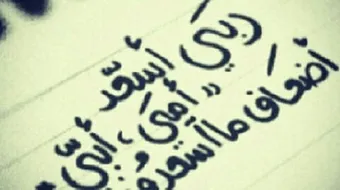 ربي أسعد
"أمي، أبي"
أضعاف ما أسعدو